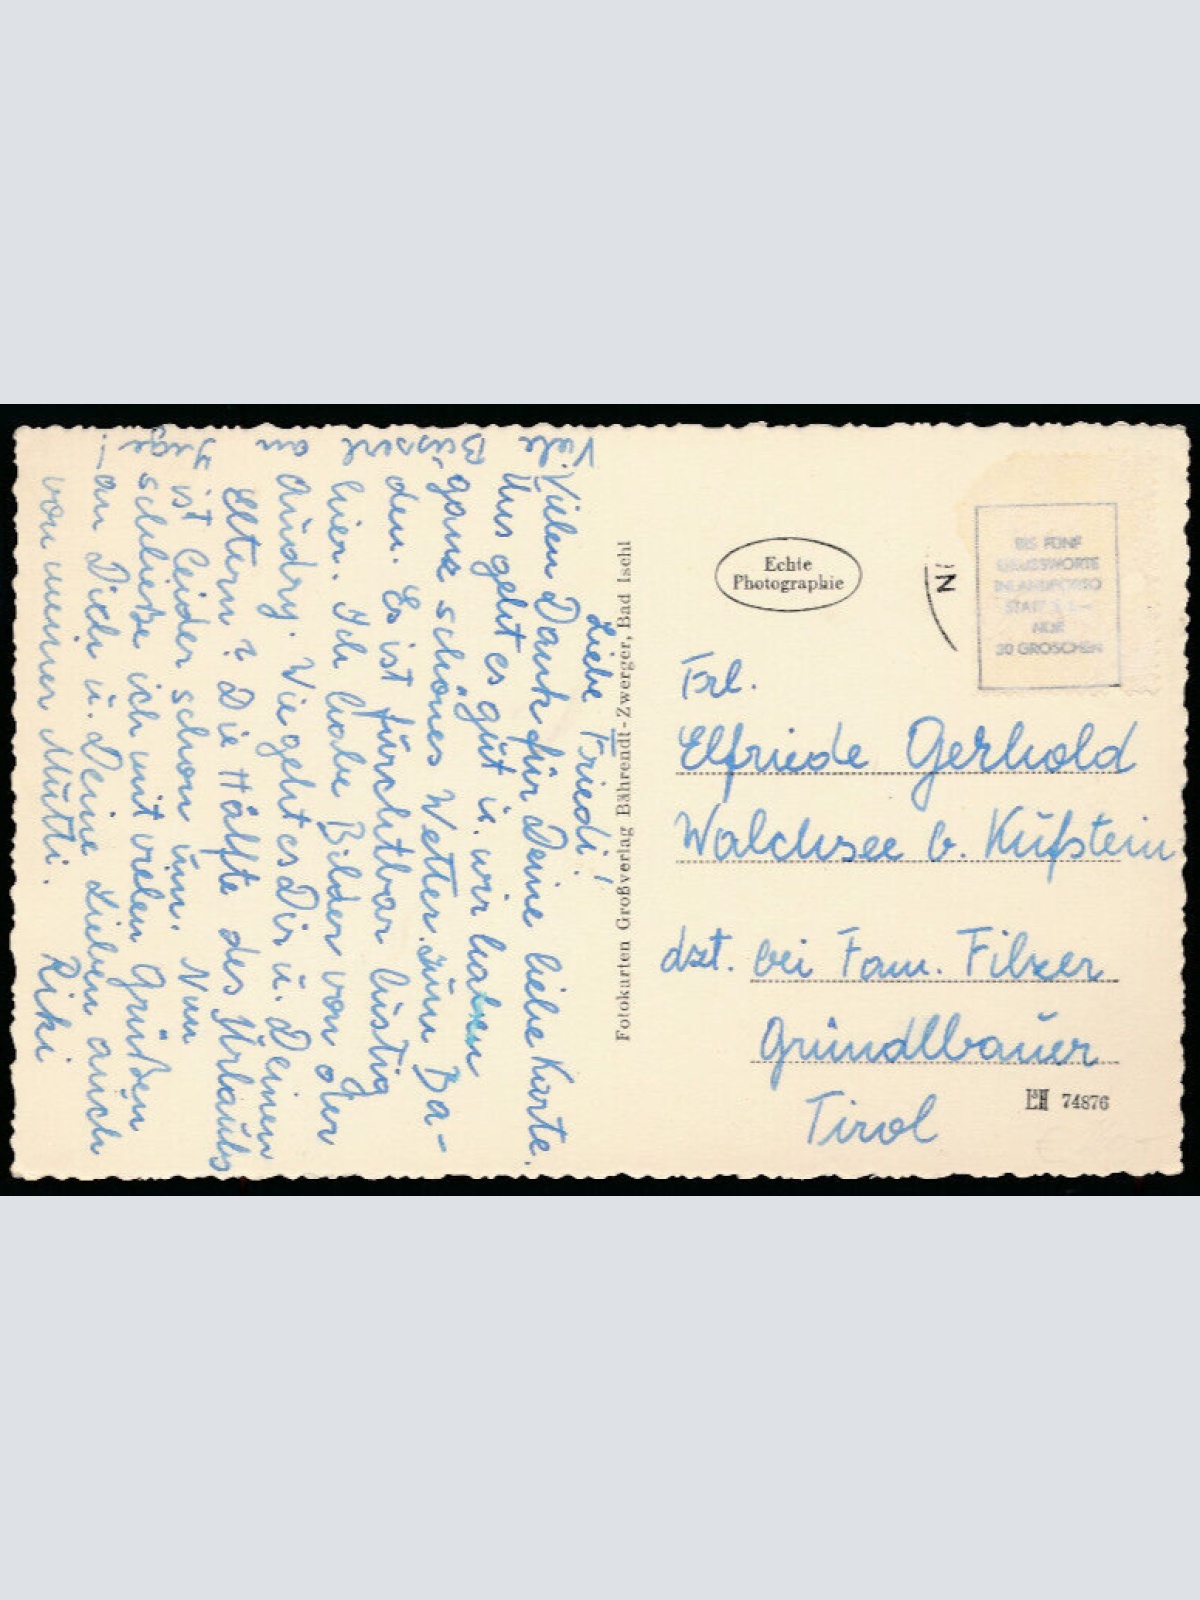 Liebe Friedi!
Vielen Dank für Deine liebe Karte.
Uns geht es gut u. wir haben
ganz schönes Wetter zum Ba-
den. Es ist furchtbar lustig
hier. Ich habe Bilder von der
Audry. Wie geht es Dir u. Deinen
Eltern? Die Hälfte des Urlaubs
ist leider schon um. Nun
schließe ich mit vielen Grüßen
an Dich u. Deine Lieben auch
von meiner Mutti.
Riki
Viele
Busserl
an
!
Fotokarten Großverlag Bährendt-Zwerger, Bad Ischl
Echte
Photographie
N
BIS FÜNF
GRUSSWORTE
INLANDPORTO
STATT S 1.—
NUR
30 GROSCHEN
Frl.
Elfriede Gerhold
Walchsee b. Kufstein
dzt. bei Fam. Filzer
Gründlbauer
Tirol
74876